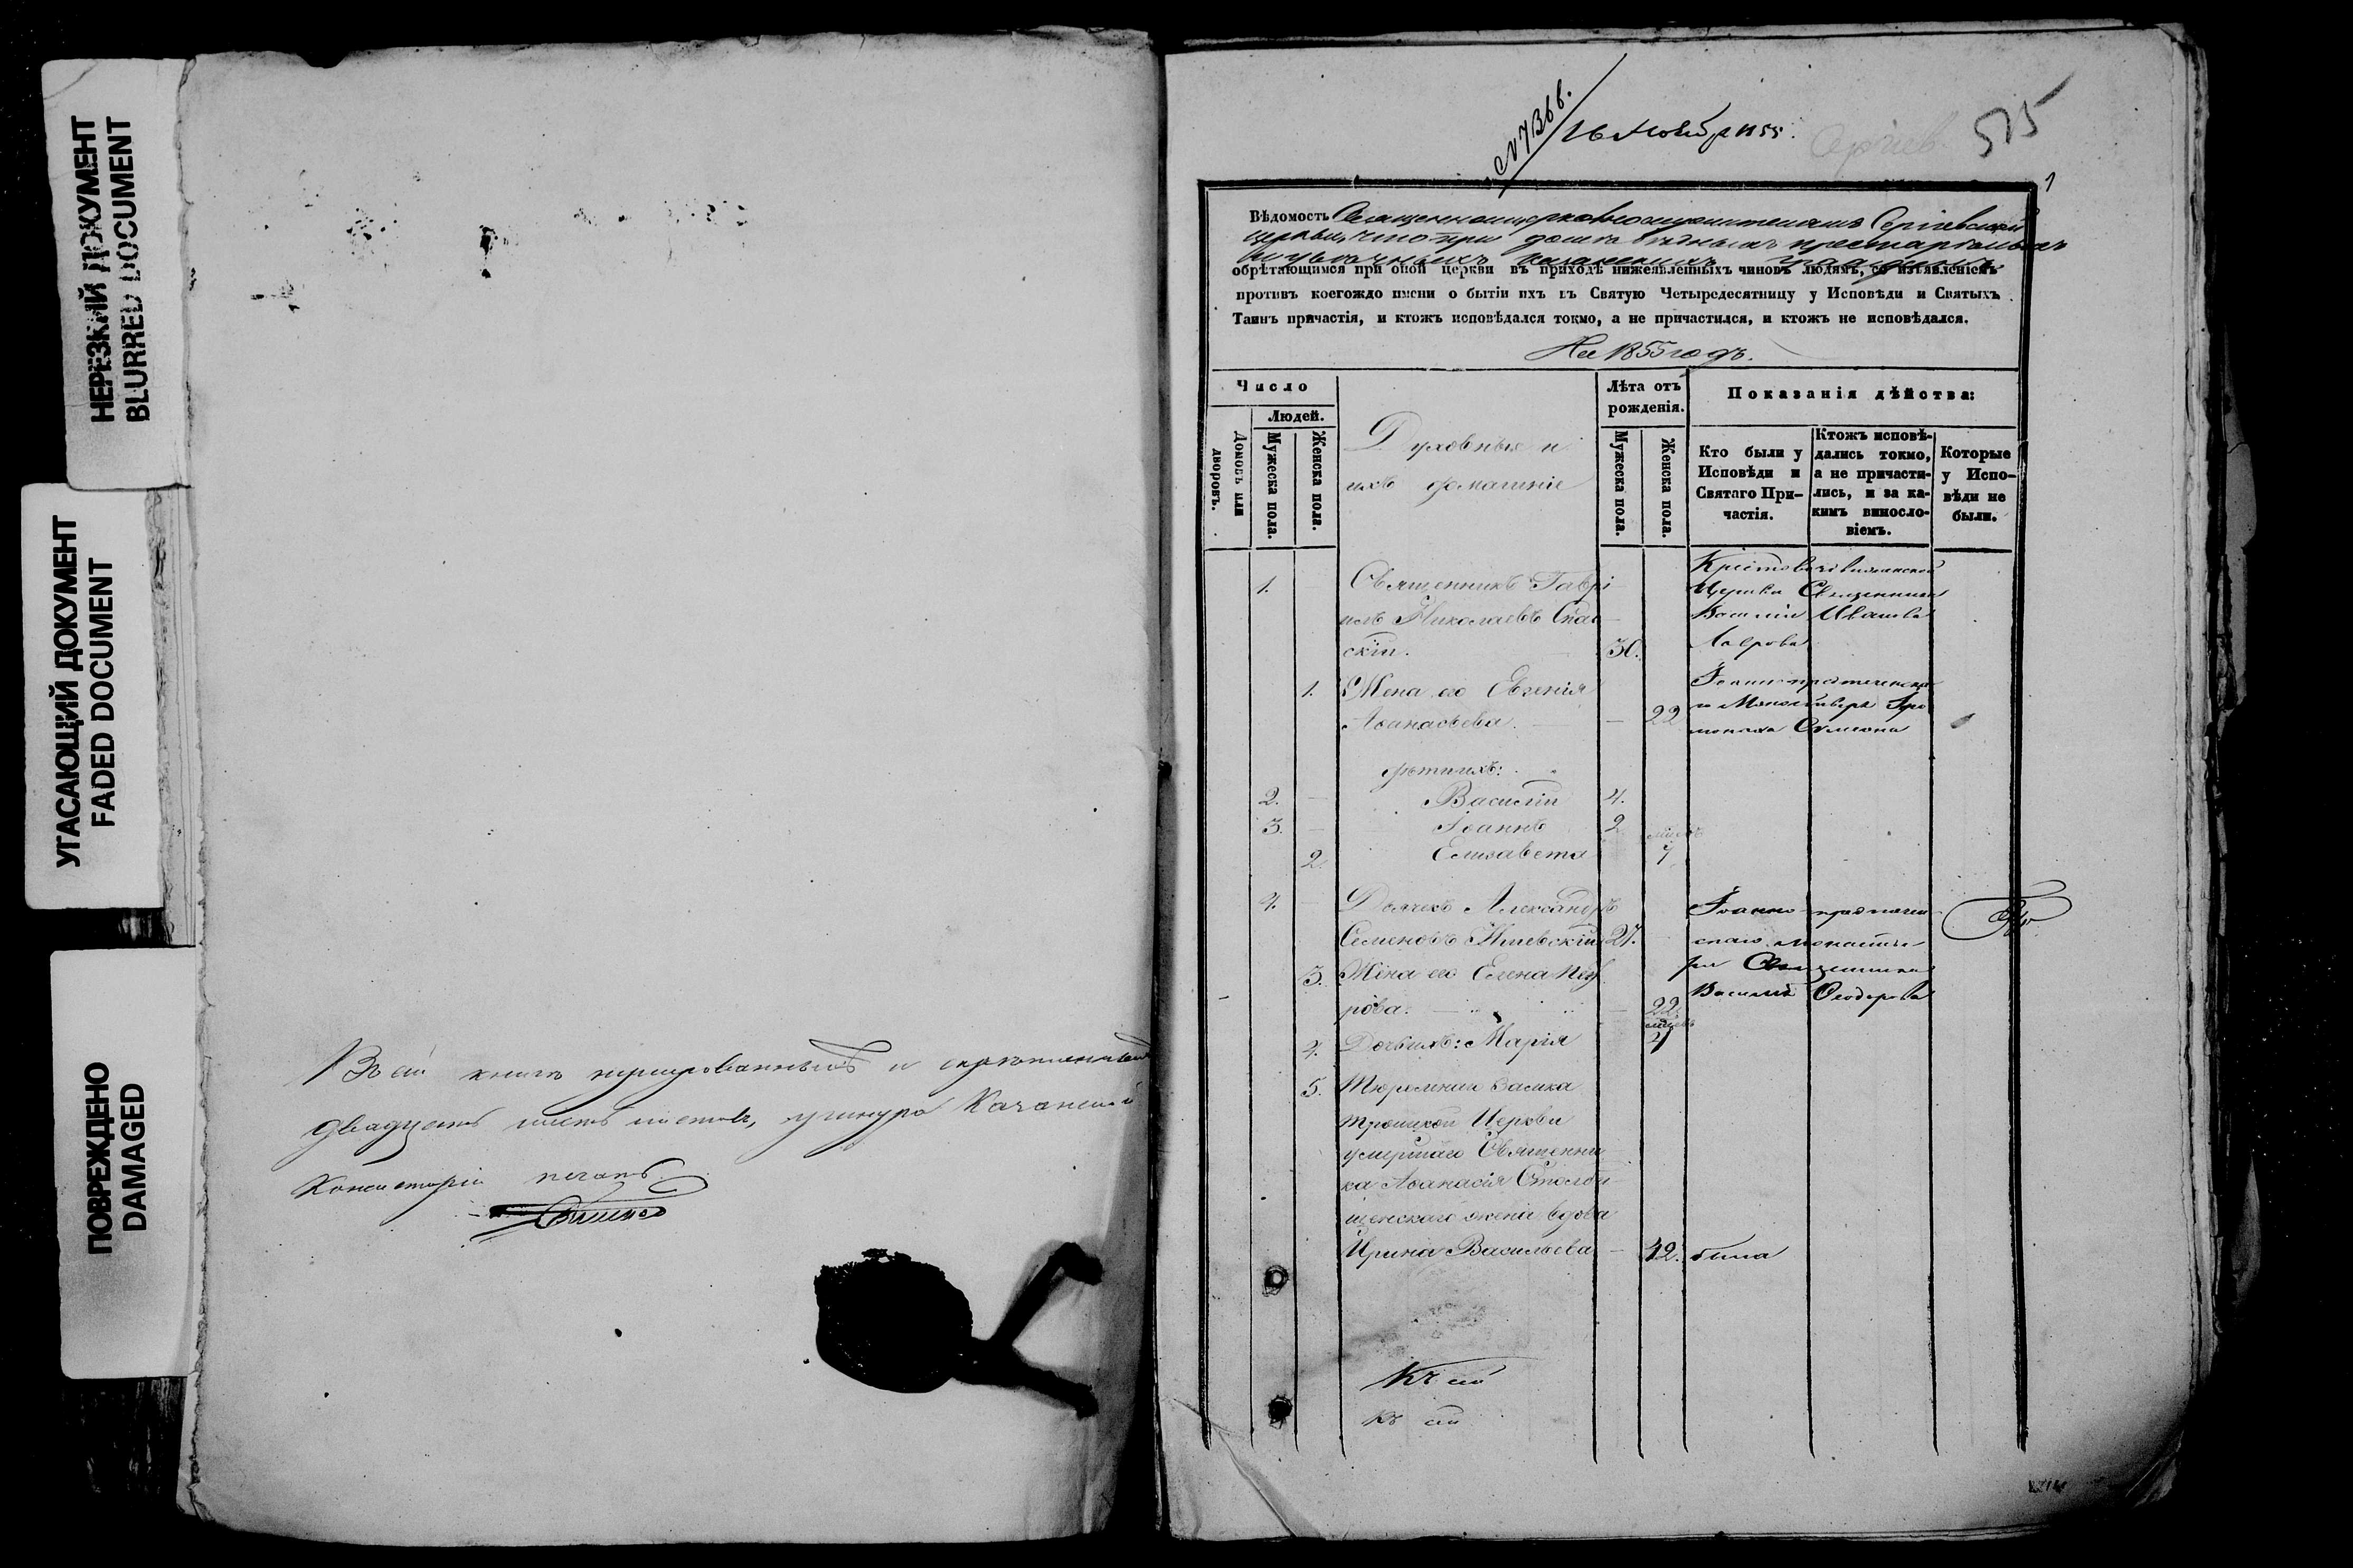 НЕРЕЗКИЙ ДОКУМЕНТ
BLURRED DOCUMENT
УГАСАЮЩИЙ ДОКУМЕНТ
FADED DOCUMENT
ПОВРЕЖДЕНО
DAMAGED
В сей книгѣ нумерованныхъ и скрѣпленныхъ
двадцать шесть листовъ, у шнура Казанской
Консисторіи печать
№ 7366.
16 Ноября 1855.
Сергіев
515
1
Вѣдомость Священноцерковнослужителямъ Сергіевской
церкви, что при домѣ бѣдныхъ престарѣлыхъ
и увѣчныхъ казанскихъ гражданъ
обрѣтающимся при оной церкви въ приходѣ нижеявленныхъ чиновъ людямъ, со изъявленіемъ
противъ коегождо имени о бытіи ихъ въ Святую Четыредесятницу у Исповѣди и Святыхъ
Таинъ причастія, и ктожъ исповѣдался токмо, а не причастился, и ктожъ не исповѣдался.
На 1855 годъ.
Число
Людей.
Домовъ или дворовъ.
Мужеска пола.
Женска пола.
Духовныя и
ихъ домашніе
Лѣта отъ рожденія.
Мужеска пола.
Женска пола.
Показанія дѣйства:
Кто были у Исповѣди и Святаго Причастія.
Ктожъ исповѣдались токмо, а не причастились, и за какимъ винословіемъ.
Которые у Исповѣди не были.
1. Священникъ Гаврі
илъ Николаевъ Спас
скій. 30.
Крестовоздвиженской
Церкви Священника
Василія Иванова
Лаврова
1. Жена его Евгенія
Аѳанасьева. 22
Іоанно-предтеченска
го Монастыря Іеро
монаха Симеона
дѣти ихъ:
2. Василій 4.
3. Іоаннъ 2
2. Елизавета 7
4. Дьячекъ Александръ
Семеновъ 27.
Іоанно-предтечен
скаго монасты-
ря Священника
Василія Ѳеодорова
3. Жена его Елена Пет
рова. 22
4. Дочь ихъ: Марія
5. Тюремнаго замка
Троицкой Церкви
умершаго Священни
ка Аѳанасія Столби
щенскаго жена вдова
Ирина Васильева 42. была
Къ сей
Къ сей